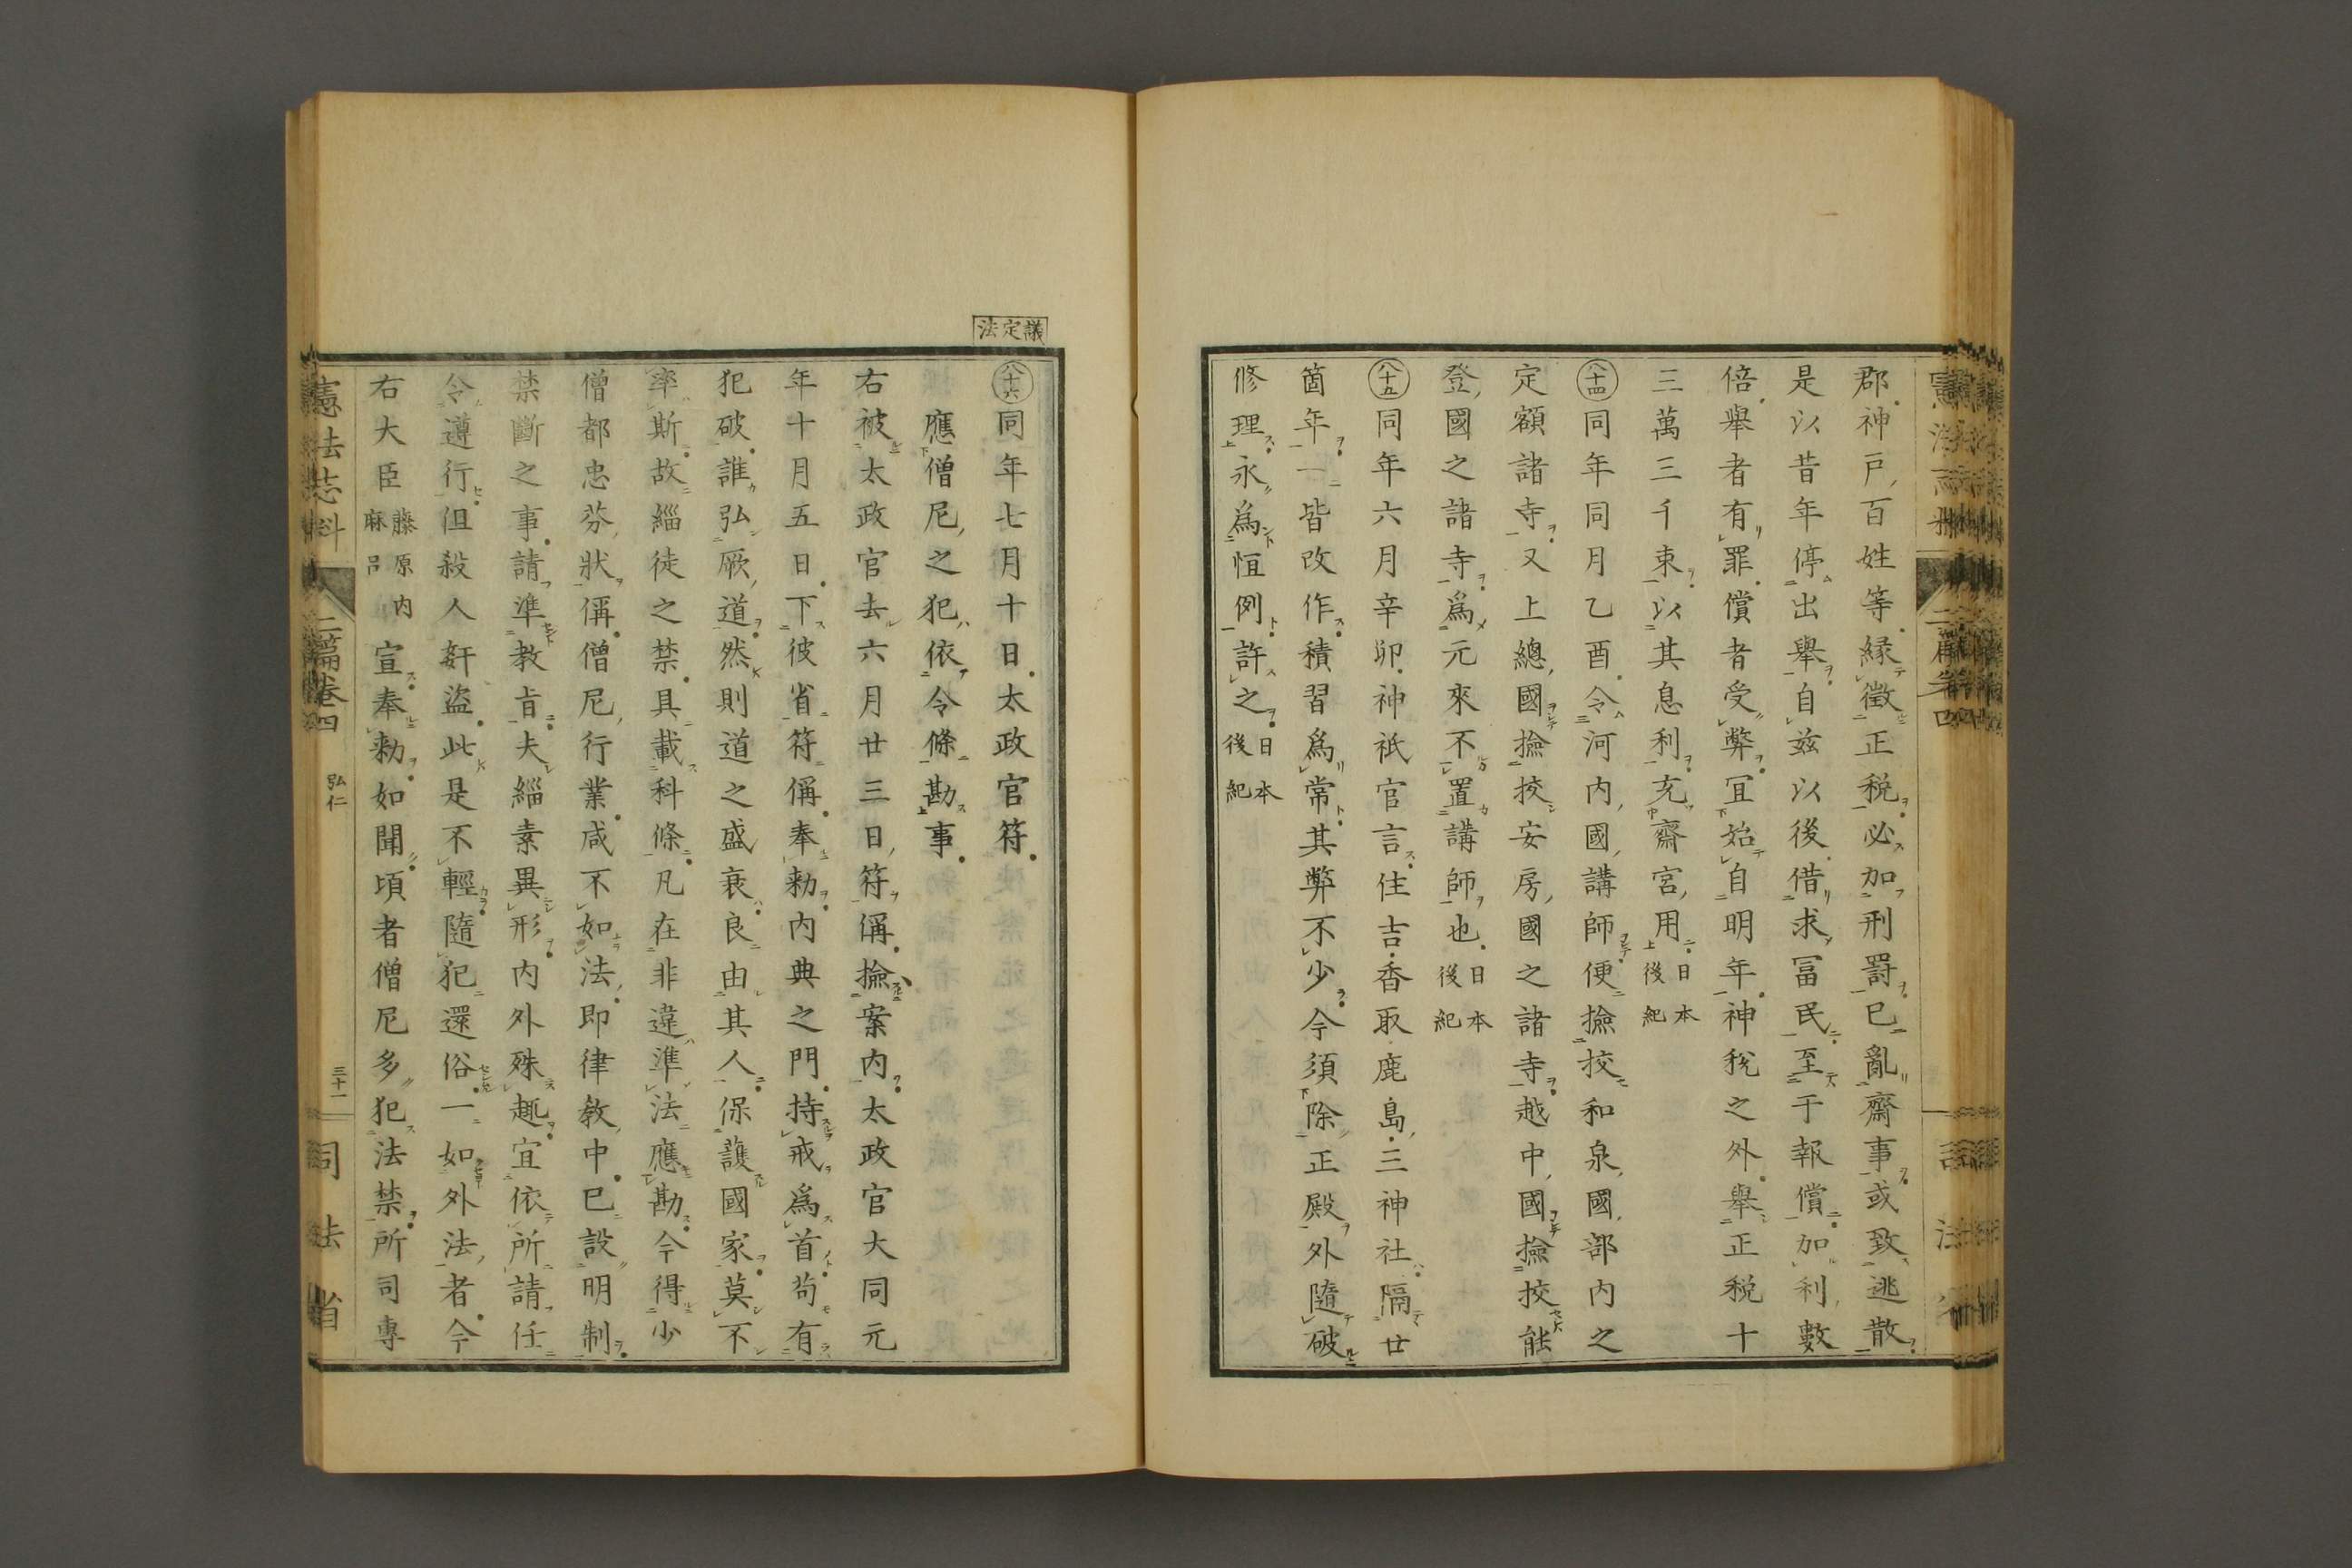 郡神戸百姓等縁徴正税必加刑罸已亂齋事或致逃散
是以昔年停出擧自玆以後借求冨民至于報償加利數
倍擧者有罪償者受弊冝始自明年神税之外擧正税十
三萬三千束以其息利充齋宮用日本後紀
八十四同年同月乙酉令河内國講師便撿挍和泉國部内之
定額諸寺又上總國撿挍安房國之諸寺越中國撿挍能
登國之諸寺爲元來不置講師也日本後紀
八十五同年六月辛卯神祇官言住吉香取鹿島三神社隔廿
箇年一皆改作積習爲常其弊不少今須除正殿外隨破
修理永爲恒例許之日本後紀
議定法
八十六同年七月十日太政官符
應僧尼之犯依令條勘事
右被太政官去六月廿三日符偁撿案内太政官大同元
年十月五日下彼省符偁奉勅内典之門持戒爲首苟有
犯破誰弘厥道然則道之盛衰良由其人保護國家莫不
率斯故緇徒之禁具載科條凡在非違準法應勘今得少
僧都忠芬狀偁僧尼行業咸不如法即律教中已設明制
禁斷之事請準教旨夫緇素異形内外殊趣宜依所請任
令遵行但殺人姧盜此是不輕隨犯還俗一如外法者今
右大臣藤原内麻呂宣奉勅如聞頃者僧尼多犯法禁所司專
憲法志料
二篇卷四
弘仁
三十一
司法省